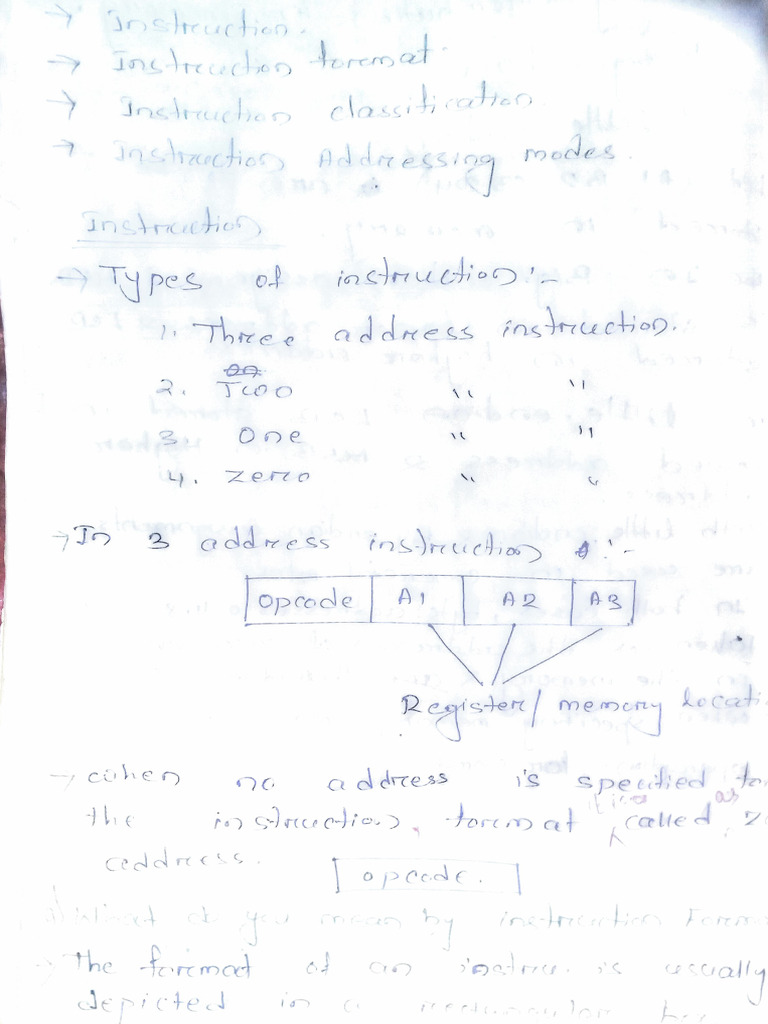 → Instruction.
→ Instruction format
→ Instruction classification
→ Instruction Addressing modes.
Instruction
→ Types of instruction :-
1. Three address instruction.
2. Two " "
3. One " "
4. Zero " "
→ In 3 address instruction :-
opcode A1 A2 A3
Register/ memory locati
→ when no address is specified
the instruction format it is called as
address.
opcode.
What do you mean by instruction Form
→ The format of an instruc. is usually
depicted in a rectangular